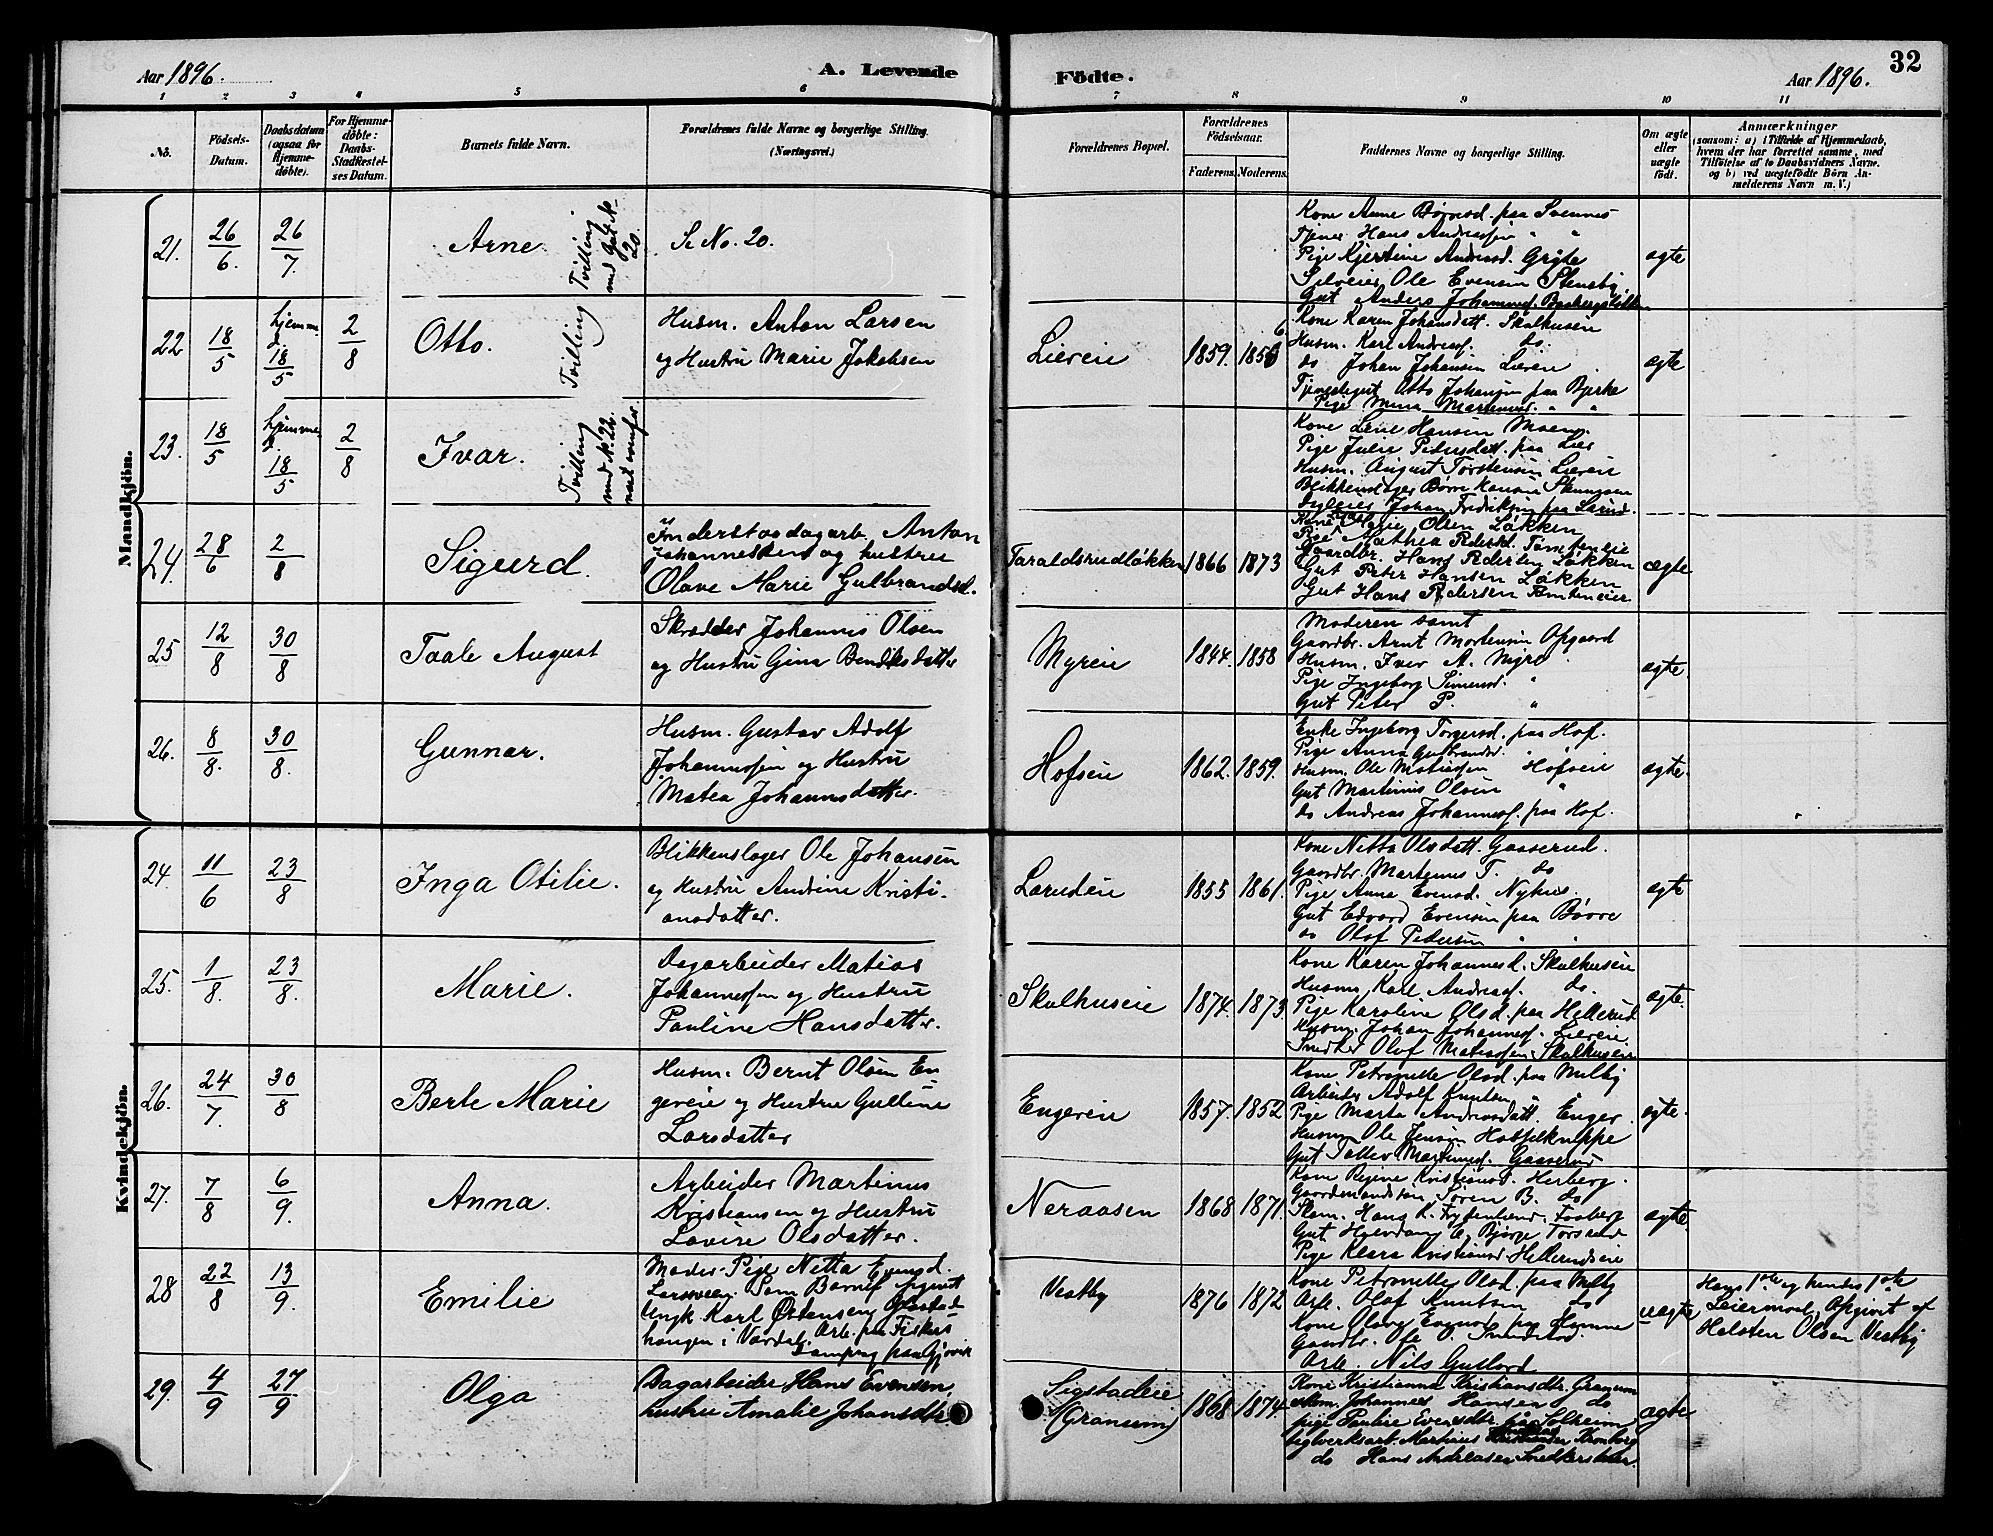 32
Aar 1896.
A. Levende
Födte.
Aar 1896.
1 2 3 4 5 6 7 8 9 10 11
No.
Födsels-
Datum.
Daabsdatum
(ogsaa for
Hjemme-
døbte).
For Hjemme-
døbte:
Daabs-
Stadfæstel-
ses Datum.
Barnets fulde Navn.
Forældrenes fulde Navne og borgerlige Stilling.
(Næringsvei.)
Forældrenes Bopæl.
Forældrenes
Födselsaar.
Faderens. Moderens.
Faddernes Navne og borgerlige Stilling.
Om ægte
eller
uægte
født.
Anmærkninger
(saasom: a) i Tilfælde af Hjemmedaab,
hvem der har forrettet samme, med
Tilföielse af to Daabsvidners Navne.
og b) ved uægtefödte Börn An-
melderens Navn m. V.)
Mandkjön.
21. 26/6. 26/7. Arne. Tvilling
Se No. 20.
Kone Anne
Tjener Hans Andreassen " "
Pige Kjerstine Andreasd. Grøte
Ole Evensen Stensby
Gut Anders Johannes.
ægte
22 18/5 hjemme
d. 18/5 2/8 Otto. Tvilling
Husm. Anton Larsen
og Hustru Marie Jakobsen
Liereie 1859. 1856
Kone Karen Johansdatt. Skalhuseie
Husm. Karl Andreas. do.
do Johan Johansen Liereie
Tjenestegut Otto Johansen paa Bjerke
Pige Mina Martinusd. " "
ægte
23. 18/5 hjemme
d. 18/5 2/8 Ivar. Tvilling
med No. 22
Kone Lene Hansen Moen.
Pige Julie Pedersdatt. paa Lier
Husm. August Torstensen Liereie
Blikkenslager Børre Hansen
Johan Fredriksen paa Larud
24. 28/6 2/8 Sigurd.
Inderst og dagarb. Anton
Johannessen og hustru
Olave Marie Gulbrandsd.
Taraldsrudløkken 1866 1873
Kone Marie Olsen Løkken
Pige Mathea Pedersd.
Gaardbr. Hans Pedersen Løkken
Gut Peter Hansen Løkken
Gut Hans Pedersen
ægte
25 12/8 30/8 Taale August
Skrædder Johannes Olsen
og Hustru Gina Bendiksdatter
Myreie 1844. 1858
Moderen samt
Gaardbr. Arnt Mortensen Opgaard
Husm. Iver A. Myre
Pige Ingeborg Simensd. "
Gut Peter P. "
ægte
26. 8/8. 30/8. Gunnar.
Husm. Gustav Adolf
Johannessen og Hustru
Matea Johannsdatter.
Hofseie 1862. 1859.
Enke Ingeborg Torgersd. paa Hof.
Pige Anna Gulbrandsd. "
Husm. Ole Matiassen Hofseie
Gut Martinus Olsen "
do Andreas Johannes. paa Hof.
ægte.
Kvindekjön.
24. 11/6 23/8 Inga Otilie.
Blikkenslager Ole Johansen
og Hustru Andrine Kristi-
ansdatter.
Larudeie 1855 1861.
Kone Netta Olsdatt. Gaaserud.
Gaardbr. Martinus T. do
Pige Anna Evensd. Nyhus.
Gut Edvard Evensen paa Børre
do Olaf Pedersen " "
ægte
25. 1/8. 23/8. Marie.
Dagarbeider Matias
Johannessen og Hustru
Pauline Hansdatter.
Skalhuseie 1874. 1873
Kone Karen Johannesd. Skalhuseie
Husm. Karl Andreas. do.
Pige Karoline Olsd. paa Hellerud
Husm. Johan Johannes. Liereie
Snedker Olaf Matiassen Skalhuseie
ægte.
26. 24/7. 30/8 Berte Marie
Husm. Bernt Olsen En-
gereie og Hustru Gulline
Larsdatter
Engereie 1857. 1852
Kone Petronelle Olsd. paa Melby
Arbeider Adolf Knutsen "
Pige Marta Andreasdatt. Enger
Husm. Ole Jensen
Gut Martinius. Gaaserud
ægte.
27. 7/8 6/9. Anna.
Arbeider Martinus
Kristiansen og Hustru
Lovise Olsdatter.
Neraasen 1868 1871.
Kone Regine Kristiansd. Herberg.
Gaardmandssøn Søren B. do
Hans K. Faaberg
Gut Halvdan
Pige Klara Kristiansd. Hellerudseie
ægte.
28 22/8 13/9. Emilie
Moder: Pige Netta Evensd.
Som Barnef. opgivet
Ungk. Karl Østensen
i Vardal. Arb. paa
paa Gjøvik
Vestby 1876 1872
Kone Petronelle Olsd. paa Melby
Arb. Olaf Knutsen do
Kone Olave
Gaardbr. Ole O.
Arb. Nils
uægte
Hans 1ste og hendes 1ste
Leiermaal, Opgivet af
Halsten Olsen Vestby
29. 4/9 27/9 Olga
Dagarbeider Hans Evensen,
hustru Amalie Johansdtr.
Sigstadeie
(Granum) 1868 1874.
Kone Kristianna Kristiansdtr. Granum
Johannes Hansen do
pige Pauline Evensdtr. Solheim
teglverksarb. Martinus Kronborg
do Hans Andreasen
ægte